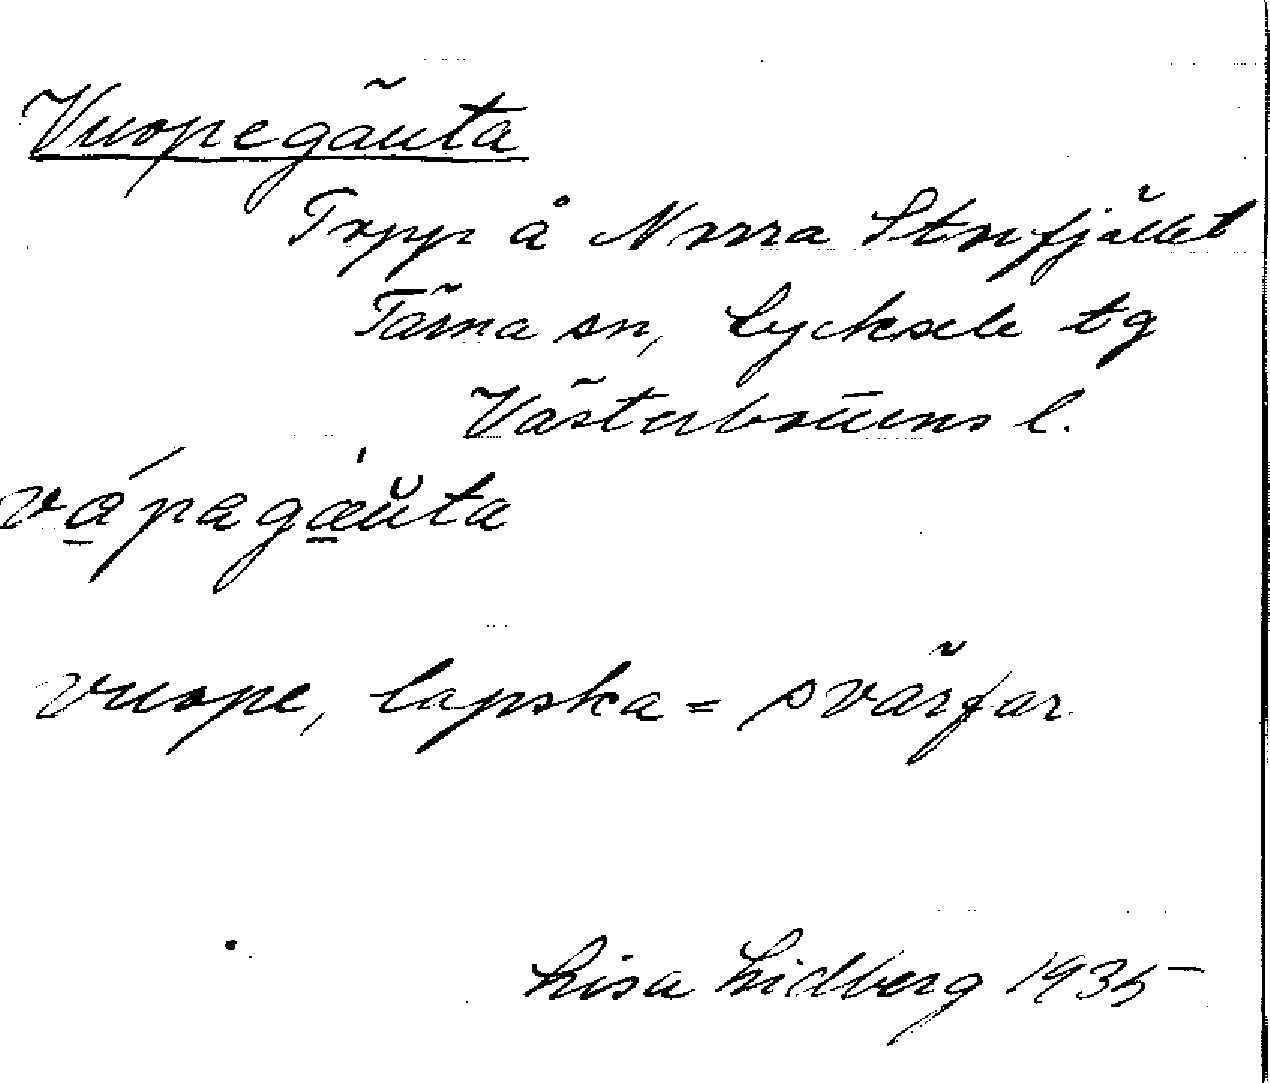 Vuopegäuta
Topp å Norra Storfjället
Tärna sn, Lycksele tg
Västerbottens l.
vápagæŭta
vuope, lapska = svärfar
Lisa Lidberg 1935